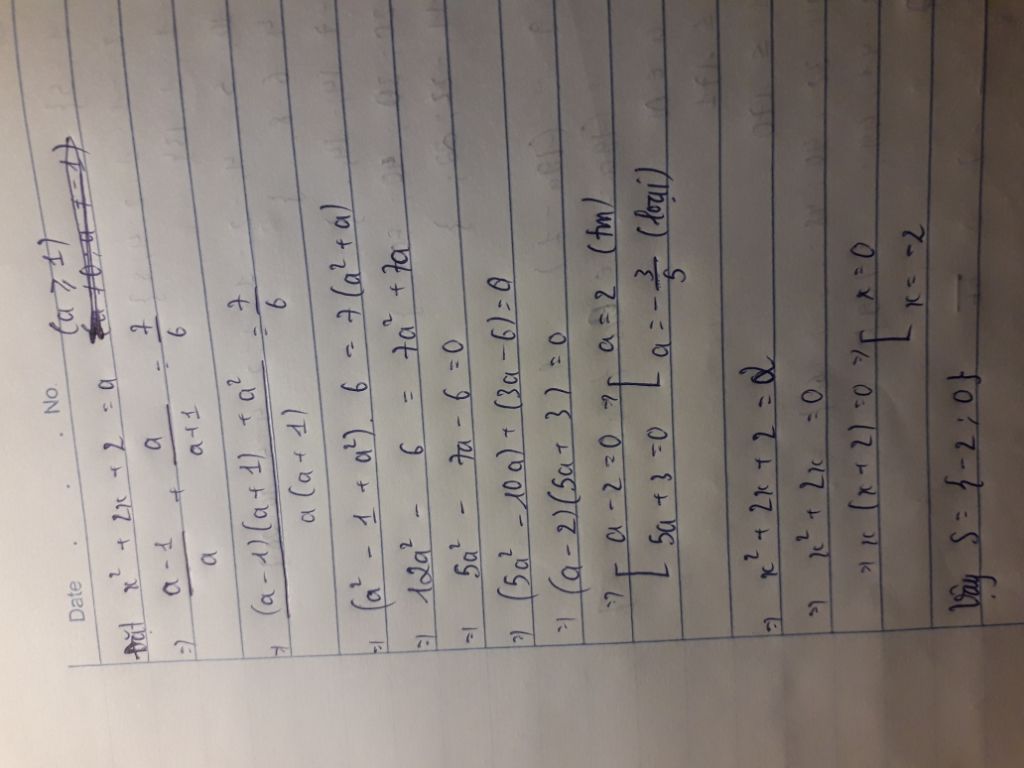 Date . . . No.
Đặt x² + 2x + 2 = a (a ≥ 1)
=) (a - 1)/a + a/(a+1) = 7/6
=) ((a - 1)(a + 1) + a²)/(a(a + 1)) = 7/6
=) (a² - 1 + a²). 6 = 7(a² + a)
=) 12a² - 6 = 7a² + 7a
=) 5a² - 7a - 6 = 0
=) (5a² - 10a) + (3a - 6) = 0
=) (a - 2)(5a + 3) = 0
=) [ a - 2 = 0 => [ a = 2 (tm)
5a + 3 = 0 a = - 3/5 (loại)
=) x² + 2x + 2 = 2
=) x² + 2x = 0
=) x (x + 2) = 0 => [ x = 0
x = -2
Vậy S = {-2 ; 0}